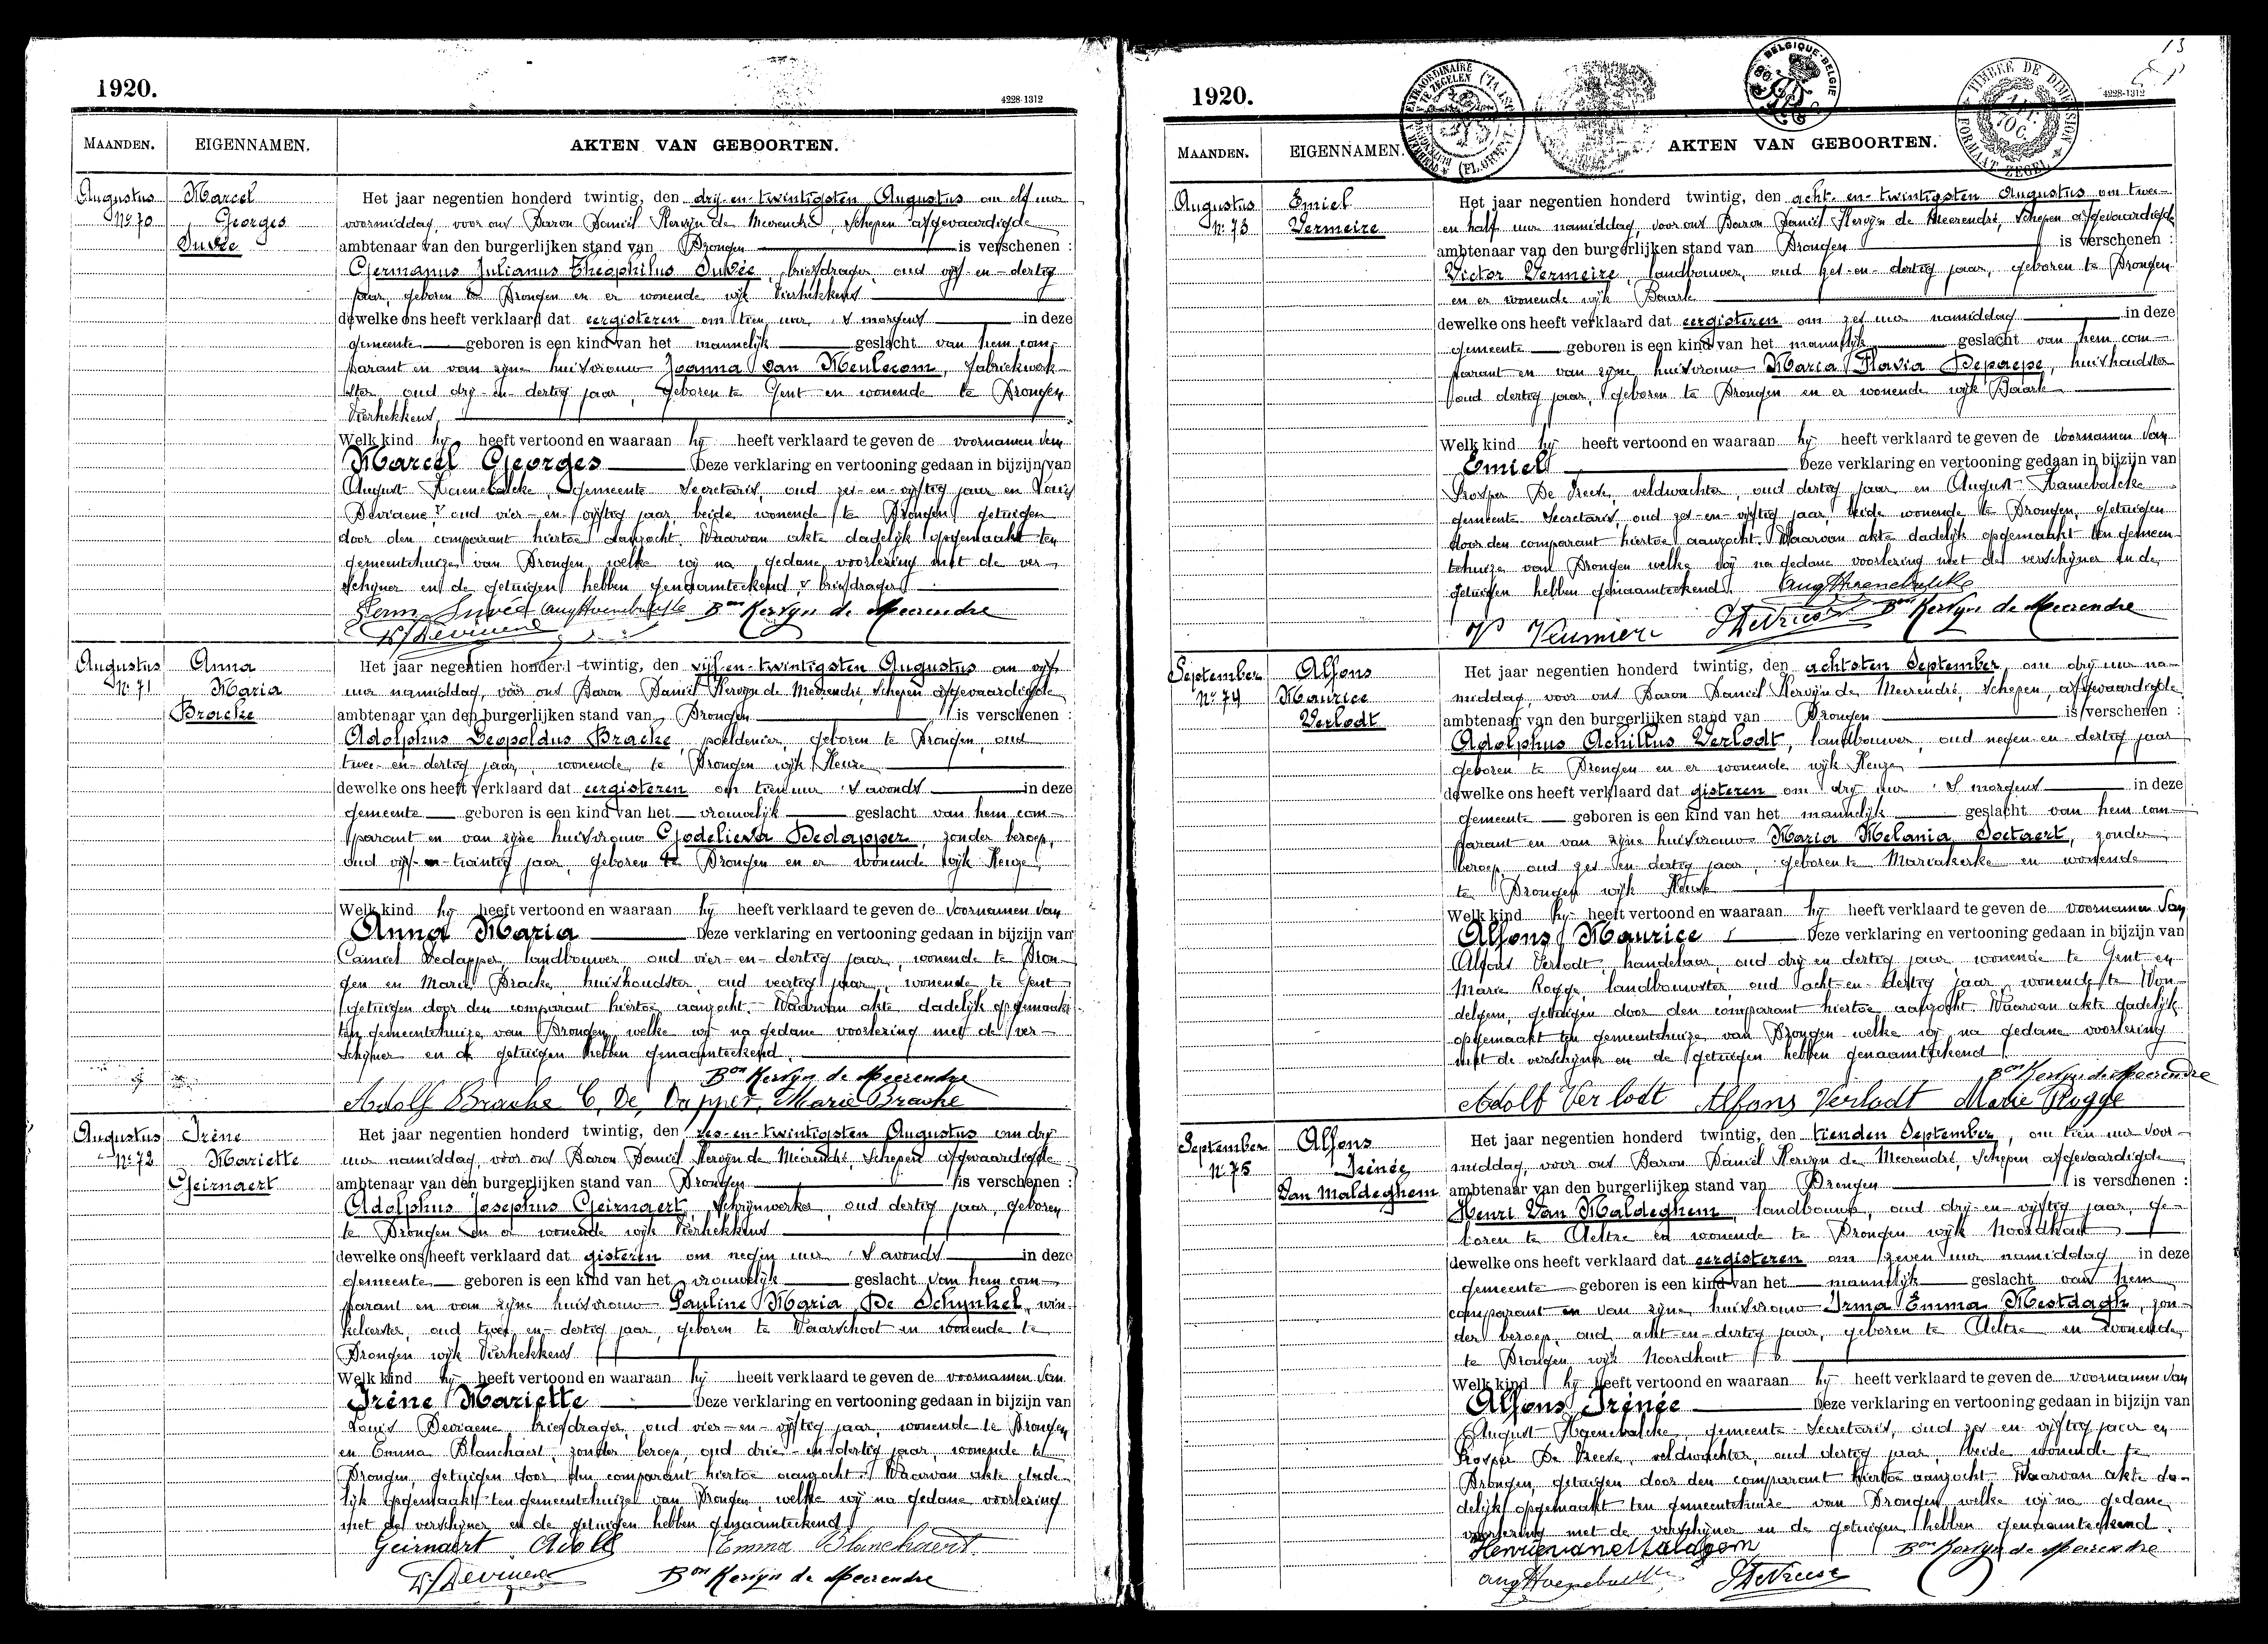 1920.
4228-1312
MAANDEN.
EIGENNAMEN.
AKTEN VAN GEBOORTEN.
Augustus
Nr 70
Marcel
Georges
Duvée
Het jaar negentien honderd twintig, den dry-en-twintigsten Augustus om elf uur
voormiddag, voor ons Baron Daniël Kervyn de Meerendré, Schepen afgevaardigde
ambtenaar van den burgerlijken stand van Drongen is verschenen :
Germanus Julianus Theophilus Duvée, briefdrager, oud vyf-en-dertig
jaar, geboren te Drongen en er wonende wyk Vierhekkens
dewelke ons heeft verklaard dat eergisteren om tien uur 's morgens in deze
gemeente geboren is een kind van het mannelyk geslacht van hem com-
parant en van zyne huisvrouw Joanna Van Meulecom, fabriekwerk-
ster oud dry-en-dertig jaar, geboren te Gent en wonende te Drongen
Vierhekkens
Welk kind hy heeft vertoond en waaraan hy heeft verklaard te geven de voornamen van
Marcel Georges Deze verklaring en vertooning gedaan in bijzijn van
August Haenebalcke, gemeente Secretaris, oud zes-en-vyftig jaar en Louis
Deviaene, oud vier-en-vyftig jaar, beide wonende te Drongen, getuigen
door den comparant hiertoe aanzocht. Waarvan akte dadelyk opgemaakt ten
gemeentehuize van Drongen welke wy na gedane voorlezing met de ver-
schyner en de getuigen hebben genaamteekend v briefdrager
Germ Duvée Aug Haenebalcke Bon Kervyn de Meerendre
Ls Deviaene
Augustus
Nr 71
Anna
Maria
Bracke
Het jaar negentien honderd twintig, den vijf-en-twintigsten Augustus om vyf
uur namiddag, voor ons Baron Daniël Kervyn de Meerendré, Schepen afgevaardigde
ambtenaar van den burgerlijken stand van Drongen is verschenen :
Adolphus Leopoldus Bracke, poeldenier, geboren te Drongen, oud
twee-en-dertig jaar, wonende te Drongen wyk Keuze
dewelke ons heeft verklaard dat eergisteren om tien uur 's avonds in deze
gemeente geboren is een kind van het vrouwelyk geslacht van hem com-
parant en van zyne huisvrouw Godelieva Dedapper, zonder beroep,
oud vyf-en-twintig jaar, geboren te Drongen en er wonende wyk Keuze,
Welk kind hy heeft vertoond en waaraan hy heeft verklaard te geven de voornamen van
Anna Maria Deze verklaring en vertooning gedaan in bijzijn van
Camiel Dedapper, landbouwer, oud vier-en-dertig jaar, wonende te Dron-
gen en Marie Bracke, huishoudster, oud veertig jaar, wonende te Gent
getuigen door den comparant hiertoe aanzocht. Waarvan akte dadelyk opgemaakt
ten gemeentehuize van Drongen, welke wy na gedane voorlezing met de ver-
schyner en de getuigen hebben genaamteekend.
Bon Kervyn de Meerendre
Adolf Bracke C. De Dapper Marie Bracke
Augustus
Nr 72
Irène
Mariette
Geirnaert
Het jaar negentien honderd twintig, den zes-en-twintigsten Augustus om dry
uur namiddag, voor ons Baron Daniël Kervyn de Meerendré, Schepen afgevaardigde
ambtenaar van den burgerlijken stand van Drongen is verschenen :
Adolphus Josephus Geirnaert, Schrynwerker, oud dertig jaar, geboren
te Drongen en er wonende wyk Vierhekkens
dewelke ons heeft verklaard dat gisteren om negen uur 's avonds in deze
gemeente geboren is een kind van het vrouwelyk geslacht van hem com-
parant en van zyne huisvrouw Pauline Maria De Schynkel, win-
kelierster, oud twee-en-dertig jaar, geboren te Waarschoot en wonende te
Drongen wyk Vierhekkens
Welk kind hy heeft vertoond en waaraan hy heeft verklaard te geven de voornamen van
Irène Mariette Deze verklaring en vertooning gedaan in bijzijn van
Louis Deviaene, briefdrager, oud vier-en-vyftig jaar, wonende te Drongen
en Emma Blanchaert, zonder beroep, oud drie-en-dertig jaar, wonende te
Drongen, getuigen door den comparant hiertoe aanzocht. Waarvan akte dade-
lyk opgemaakt ten gemeentehuize van Drongen, welke wy na gedane voorlezing
met de verschyner en de getuigen hebben genaamteekend
Geirnaert Adolf Emma Blanchaert
Ls Deviaene Bon Kervyn de Meerendre
13
1920.
BELGIQUE-BELGIE
TIMBRE DE DIMENSION
FORMAAT ZEGEL
4228-1312
MAANDEN.
EIGENNAMEN.
AKTEN VAN GEBOORTEN.
Augustus
Nr 73
Emiel
Vermeire
Het jaar negentien honderd twintig, den acht-en-twintigsten Augustus om twee
en half uur namiddag, voor ons Baron Daniël Kervyn de Meerendré, Schepen afgevaardigde
ambtenaar van den burgerlijken stand van Drongen is verschenen :
Victor Vermeire, landbouwer, oud zes-en-dertig jaar, geboren te Drongen
en er wonende wyk Baarle
dewelke ons heeft verklaard dat eergisteren om zes uur namiddag in deze
gemeente geboren is een kind van het mannelyk geslacht van hem com-
parant en van zyne huisvrouw Maria Flavia Depaepe, huishoudster
oud dertig jaar, geboren te Drongen en er wonende wyk Baarle
Welk kind hy heeft vertoond en waaraan hy heeft verklaard te geven de voornamen van
Emiel Deze verklaring en vertooning gedaan in bijzijn van
Prosper De Vreese, veldwachter, oud dertig jaar en August Haenebalcke
gemeente Secretaris, oud zes-en-vyftig jaar, beide wonende te Drongen, getuigen
door den comparant hiertoe aanzocht. Waarvan akte dadelyk opgemaakt ten gemeen-
tehuize van Drongen welke wy na gedane voorlezing met de verschyner en de
getuigen hebben genaamteekend. Aug Haenebalcke
Vr Veumiere P DeVreese Bon Kervyn de Meerendre
September
Nr 74
Alfons
Maurice
Verlodt
Het jaar negentien honderd twintig, den achtsten September, om dry uur na-
middag, voor ons Baron Daniël Kervyn de Meerendré, Schepen, afgevaardigde
ambtenaar van den burgerlijken stand van Drongen is verschenen :
Adolphus Achillus Verlodt, landbouwer, oud negen-en-dertig jaar
geboren te Drongen en er wonende wyk Keuze
dewelke ons heeft verklaard dat gisteren om dry uur 's morgens in deze
gemeente geboren is een kind van het mannelyk geslacht van hem com-
parant en van zyne huisvrouw Maria Melania Soetaert, zonder
beroep, oud zes-en-dertig jaar, geboren te Mariakerke en wonende
te Drongen wyk Keuze
Welk kind hy heeft vertoond en waaraan hy heeft verklaard te geven de voornamen van
Alfons Maurice Deze verklaring en vertooning gedaan in bijzijn van
Alfons Verlodt, handelaar, oud dry-en-dertig jaar, wonende te Gent en
Marie Rogge, landbouwster, oud acht-en-dertig jaar, wonende te Won-
delgem, getuigen door den comparant hiertoe aanzocht. Waarvan akte dadelyk
opgemaakt ten gemeentehuize van Drongen welke wy na gedane voorlezing
met de verschyner en de getuigen hebben genaamteekend
Bon Kervyn de Meerendre
Adolf Verlodt Alfons Verlodt Marie Rogge
September
Nr 75
Alfons
Irénée
Van Maldeghem
Het jaar negentien honderd twintig, den tienden September, om tien uur voor-
middag, voor ons Baron Daniël Kervyn de Meerendré, Schepen afgevaardigde
ambtenaar van den burgerlijken stand van Drongen is verschenen :
Henri Van Maldeghem, landbouwer, oud dry-en-vyftig jaar, ge-
boren te Aeltre en wonende te Drongen wyk Noordhout
dewelke ons heeft verklaard dat eergisteren om zeven uur namiddag in deze
gemeente geboren is een kind van het mannelyk geslacht van hem
comparant en van zyne huisvrouw Irma Emma Mestdagh, zon-
der beroep, oud acht-en-dertig jaar, geboren te Aeltre en wonende
te Drongen wyk Noordhout
Welk kind hy heeft vertoond en waaraan hy heeft verklaard te geven de voornamen van
Alfons Irénée Deze verklaring en vertooning gedaan in bijzijn van
August Haenebalcke, gemeente Secretaris, oud zes en vyftig jaar en
Prosper De Vreese, veldwachter, oud dertig jaar, beide wonende te
Drongen, getuigen door den comparant hiertoe aanzocht. Waarvan akte da-
delyk opgemaakt ten gemeentehuize van Drongen welke wy na gedane
voorlezing met de verschyner en de getuigen hebben genaamteekend.
Henrie vane Maldegem Bon Kervyn de Meerendre
Aug Haenebalcke P DeVreese